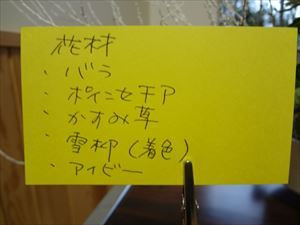 花材
・バラ
・ポインセチア
・かすみ草
・雪柳(着色)
・アイビー